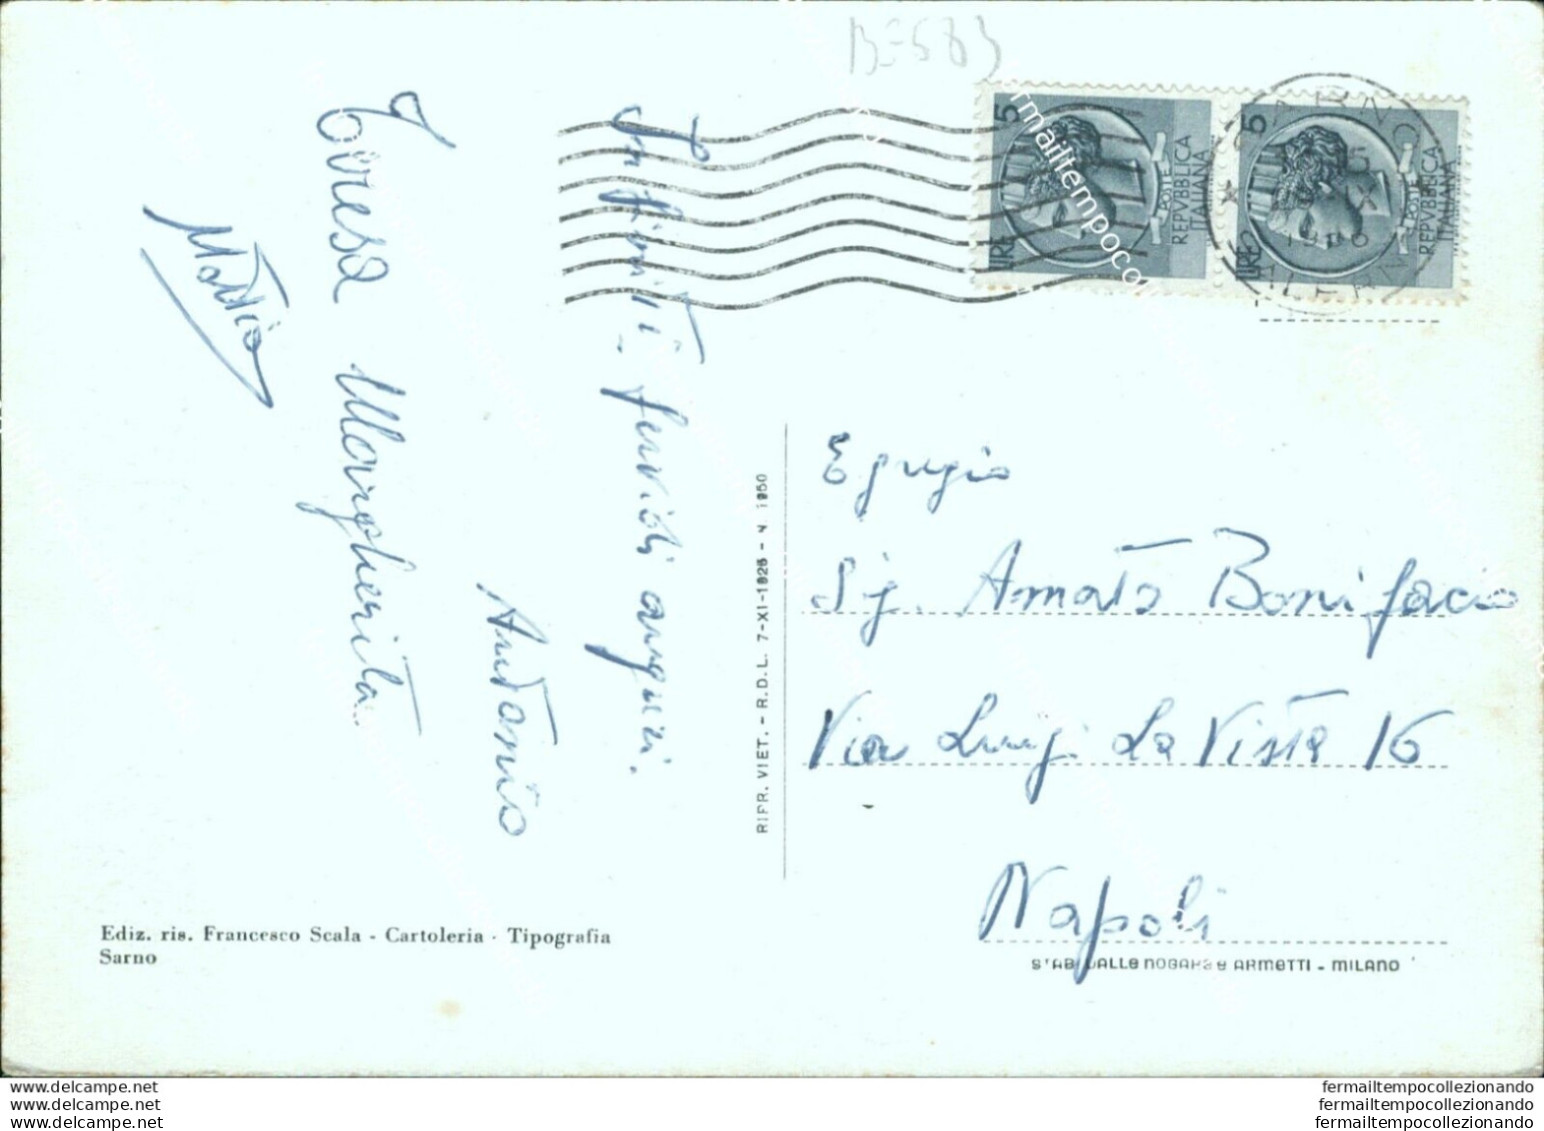 BE583
Infiniti fervidi auguri.
Antonio
Teresa Margherita
Mattia
5
LIRE
POSTE
REPVBBLICA
ITALIANA
5
LIRE
POSTE
REPVBBLICA
ITALIANA
SARNO
fermailtempocollezionando
Egregio
Sig. Amato Bonifacio
Via Luigi La Vista 16
Napoli
RIPR. VIET. - R.D.L. 7-XI-1925 - N 1950
Ediz. ris. Francesco Scala - Cartoleria - Tipografia
Sarno
STAB. DALLE NOGARE e ARMETTI - MILANO
www.delcampe.net
www.delcampe.net
www.delcampe.net
fermailtempocollezionando
fermailtempocollezionando
fermailtempocollezionando